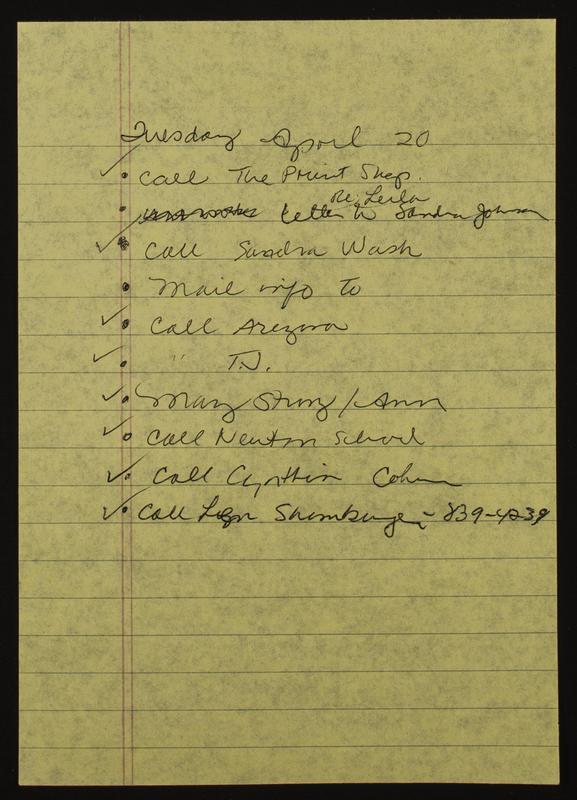 Tuesday April 20
✓ • Call The Print Shop.
Re: Leila
• Letter to Sandra Johnson
✓ • Call Sandra Wash
• Mail info to
✓ • Call Arizona
✓ • " T.J.
✓ • Mary Strong / Ann
✓ • Call Newton School
✓ • Call Cynthia Cohen
✓ • Call - 839-4239